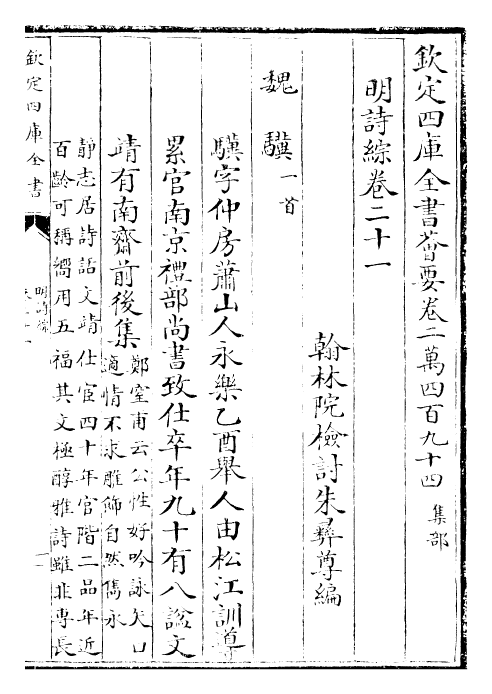 欽定四庫全書薈要卷二萬四百九十四 集部
明詩綜卷二十一
翰林院檢討朱彝尊編
魏驥一首
驥字仲房蕭山人永樂乙酉舉人由松江訓導
累官南京禮部尚書致仕卒年九十有八諡文
靖有南齋前後集鄭室甫云公性好吟詠矢口
適情不求雕飾自然雋永
靜志居詩話文靖仕宦四十年官階二品年近
百齡可稱嚮用五福其文極醇雅詩雖非專長
欽定四庫全書
明詩綜